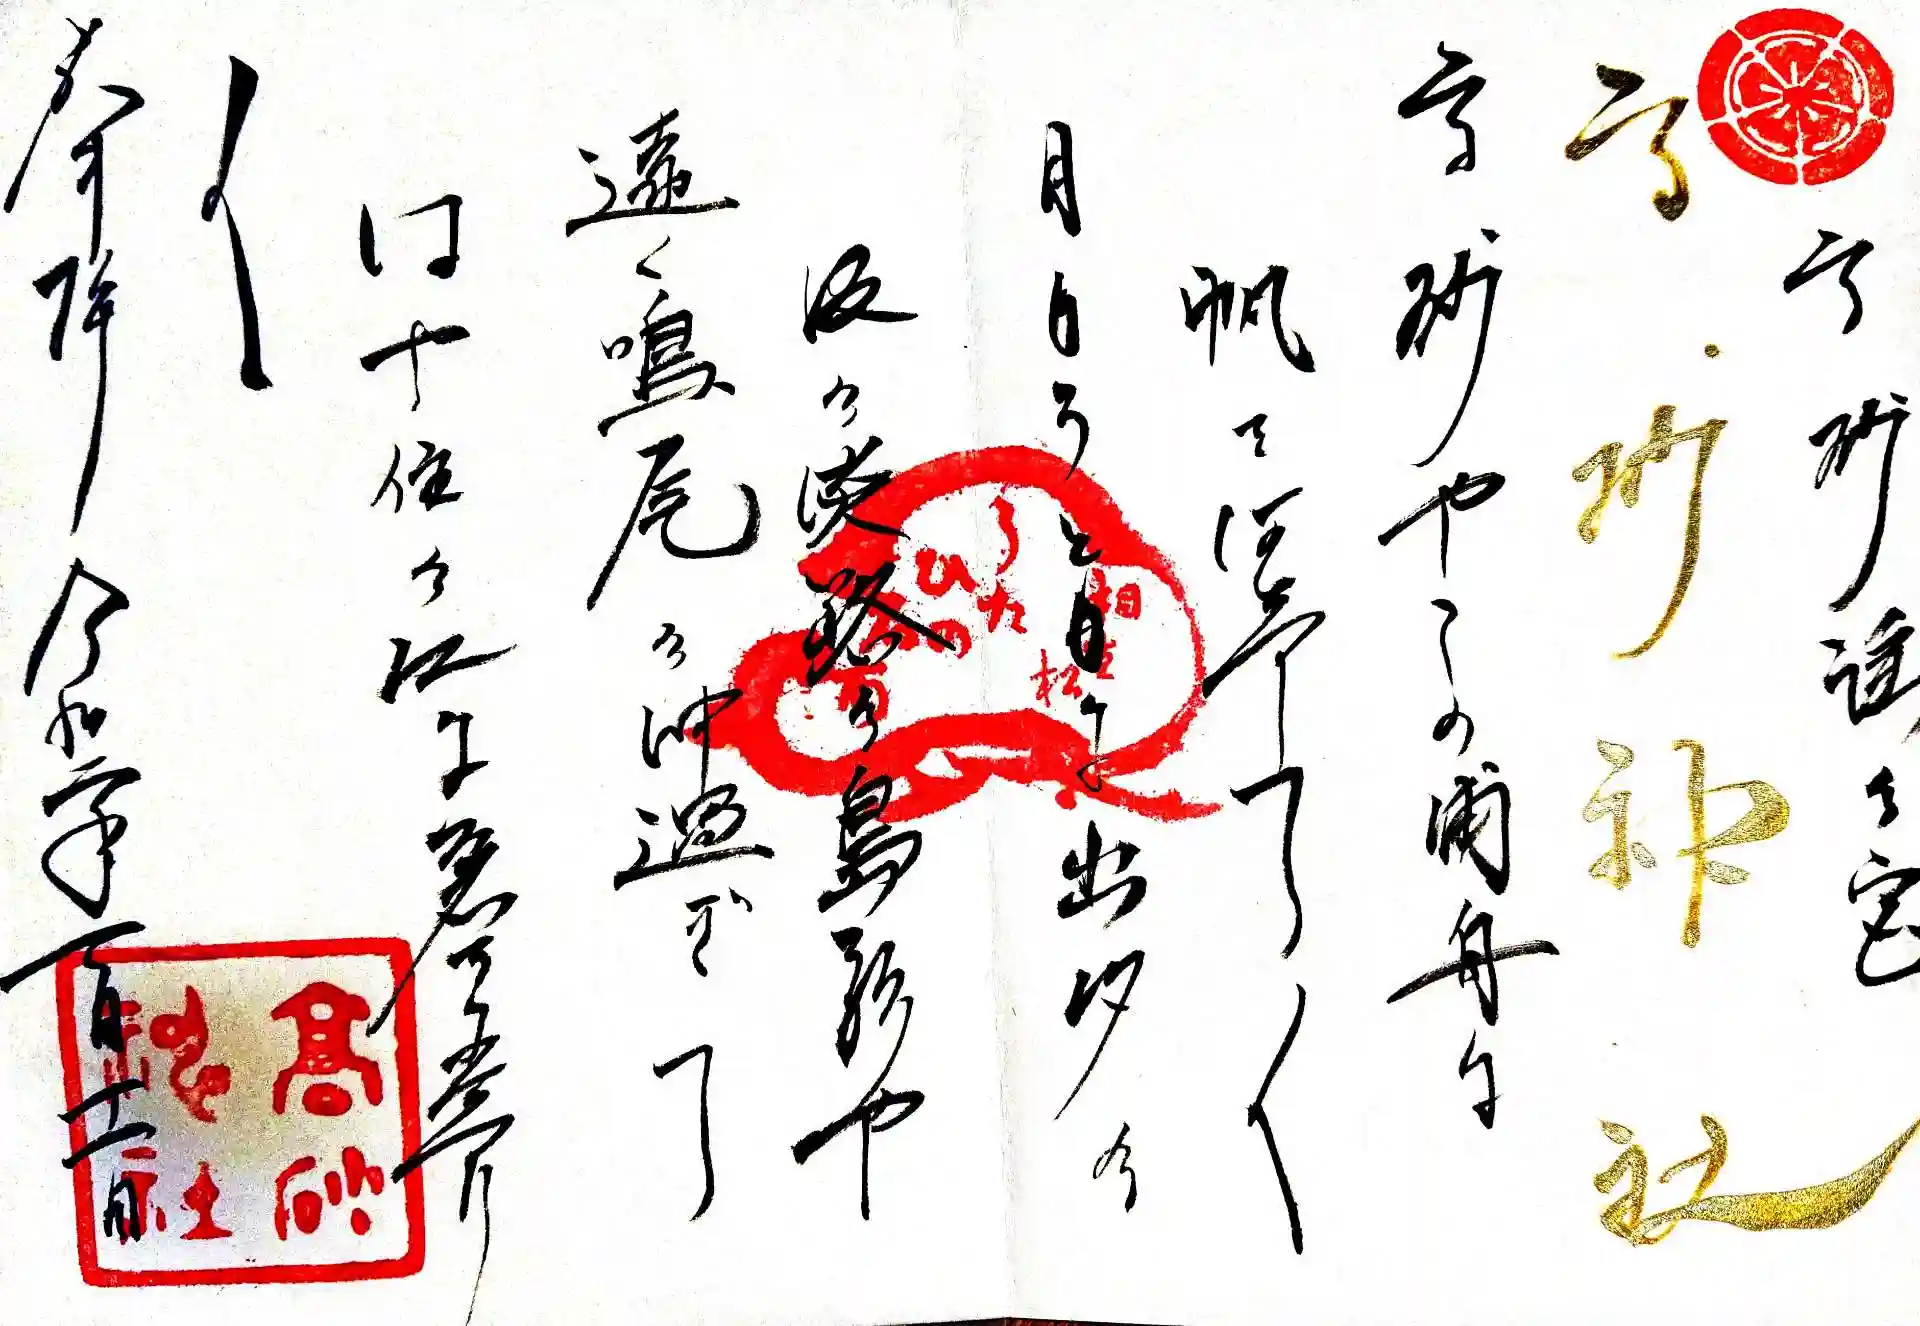 高砂謡の宮
高砂神社
高砂やこの浦舟に
帆を揚げて〳〵
月もろともに出汐の
波の淡路の島影や
遠く鳴尾の沖過ぎて
はや住の江に着きにけり
〳〵
奉拝 令和
相生松
うたひの
高砂神社